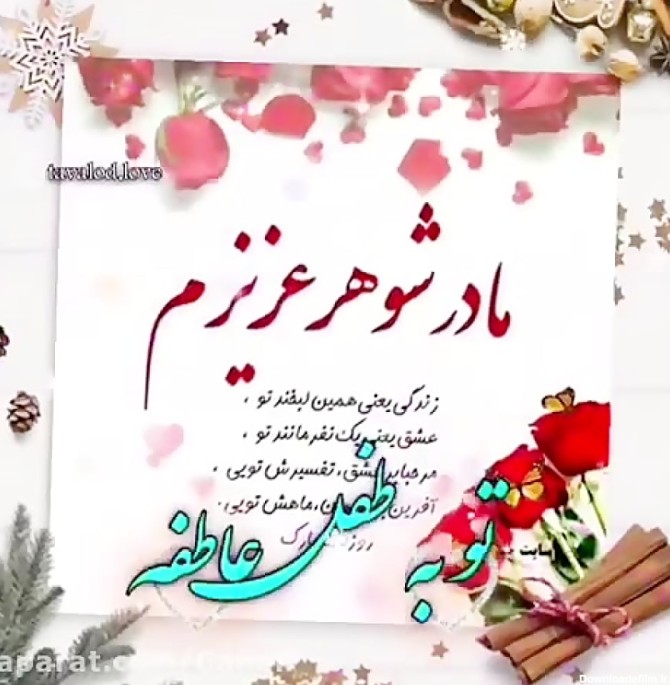 tavalod.love
مادر شوهر عزیزم
زندگی یعنی همین لبخند تو ،
عشق یعنی یک نفر مانند تو ،
مرحبا بر عشق، تفسیرش تویی ،
آفرین ماهش تویی،
روزت مبارک
توبه طفل عاطفه
سایت
aparat.com/